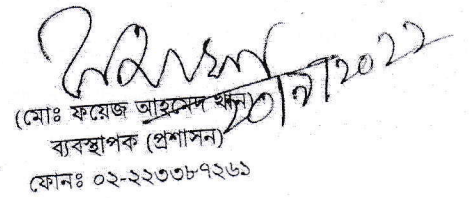 ২০/৭/২০২২
(মোঃ ফয়েজ আহমেদ খান)
ব্যবস্থাপক (প্রশাসন)
ফোনঃ ০২-২২৩৩৮৭২৬১